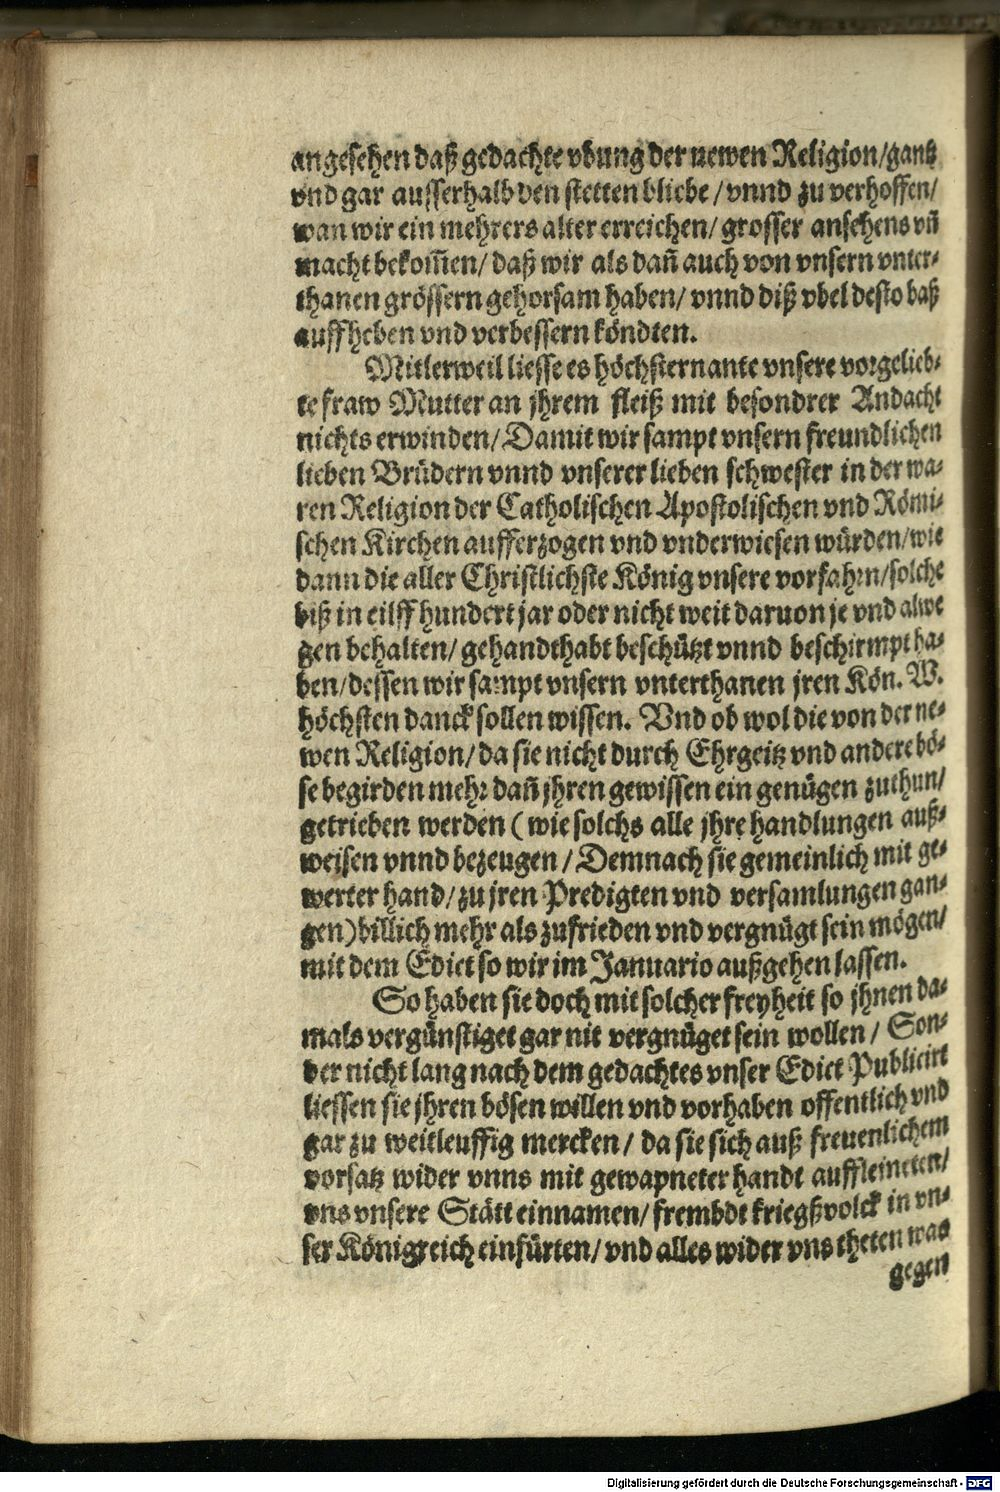 angesehen daß gedachte vbung der newen Religion/gantz
vnd gar ausserhalb den stetten bliebe / vnnd zu verhoffen/
wan wir ein mehrers alter erreichen/ grosser ansehens vñ
macht bekom̃en/ daß wir als dañ auch von vnsern vnter-
thanen grössern gehorsam haben/ vnnd diß vbel desto baß
auffheben vnd verbessern köndten.
Mitlerweil liesse es höchsternante vnsere vorgelieb-
te fraw Mutter an jhrem fleiß mit besondrer Andacht
nichts erwinden/ Damit wir sampt vnsern freundlichen
lieben Brüdern vnnd vnserer lieben schwester in der wa-
ren Religion der Catholischen Apostolischen vnd Römi-
schen Kirchen aufferzogen vnd vnderwiesen würden/wie
dann die aller Christlichste König vnsere vorfahrn/solche
biß in eilff hundert jar oder nicht weit daruon je vnd alwe
gen behalten/ gehandthabt beschützt vnnd beschirmpt ha-
ben/dessen wir sampt vnsern vnterthanen jren Kön. W.
höchsten danck sollen wissen. Vnd ob wol die von der ne-
wen Religion/ da sie nicht durch Ehrgeitz vnd andere bö-
se begirden mehr dañ jhren gewissen ein genügen zuthun/
getrieben werden ( wie solchs alle jhre handlungen auß-
weisen vnnd bezeugen / Demnach sie gemeinlich mit ge-
werter hand/ zu jren Predigten vnd versamlungen gan-
gen) billich mehr als zufrieden vnd vergnügt sein mögen/
mit dem Edict so wir im Januario außgehen lassen.
So haben sie doch mit solcher freyheit so jhnen da-
mals vergünstiget gar nit vergnüget sein wollen / Son-
der nicht lang nach dem gedachtes vnser Edict Publicirt
liessen sie jhren bösen willen vnd vorhaben offentlich vnd
gar zu weitleuffig mercken / da sie sich auß freuenlichem
vorsatz wider vnns mit gewapneter handt auffleineten/
vns vnsere Stätt einnamen/ frembdt kriegßvolck in vn-
ser Königreich einfürten/ vnd alles wider vns theten was
gegen
Digitalisierung gefördert durch die Deutsche Forschungsgemeinschaft - DFG